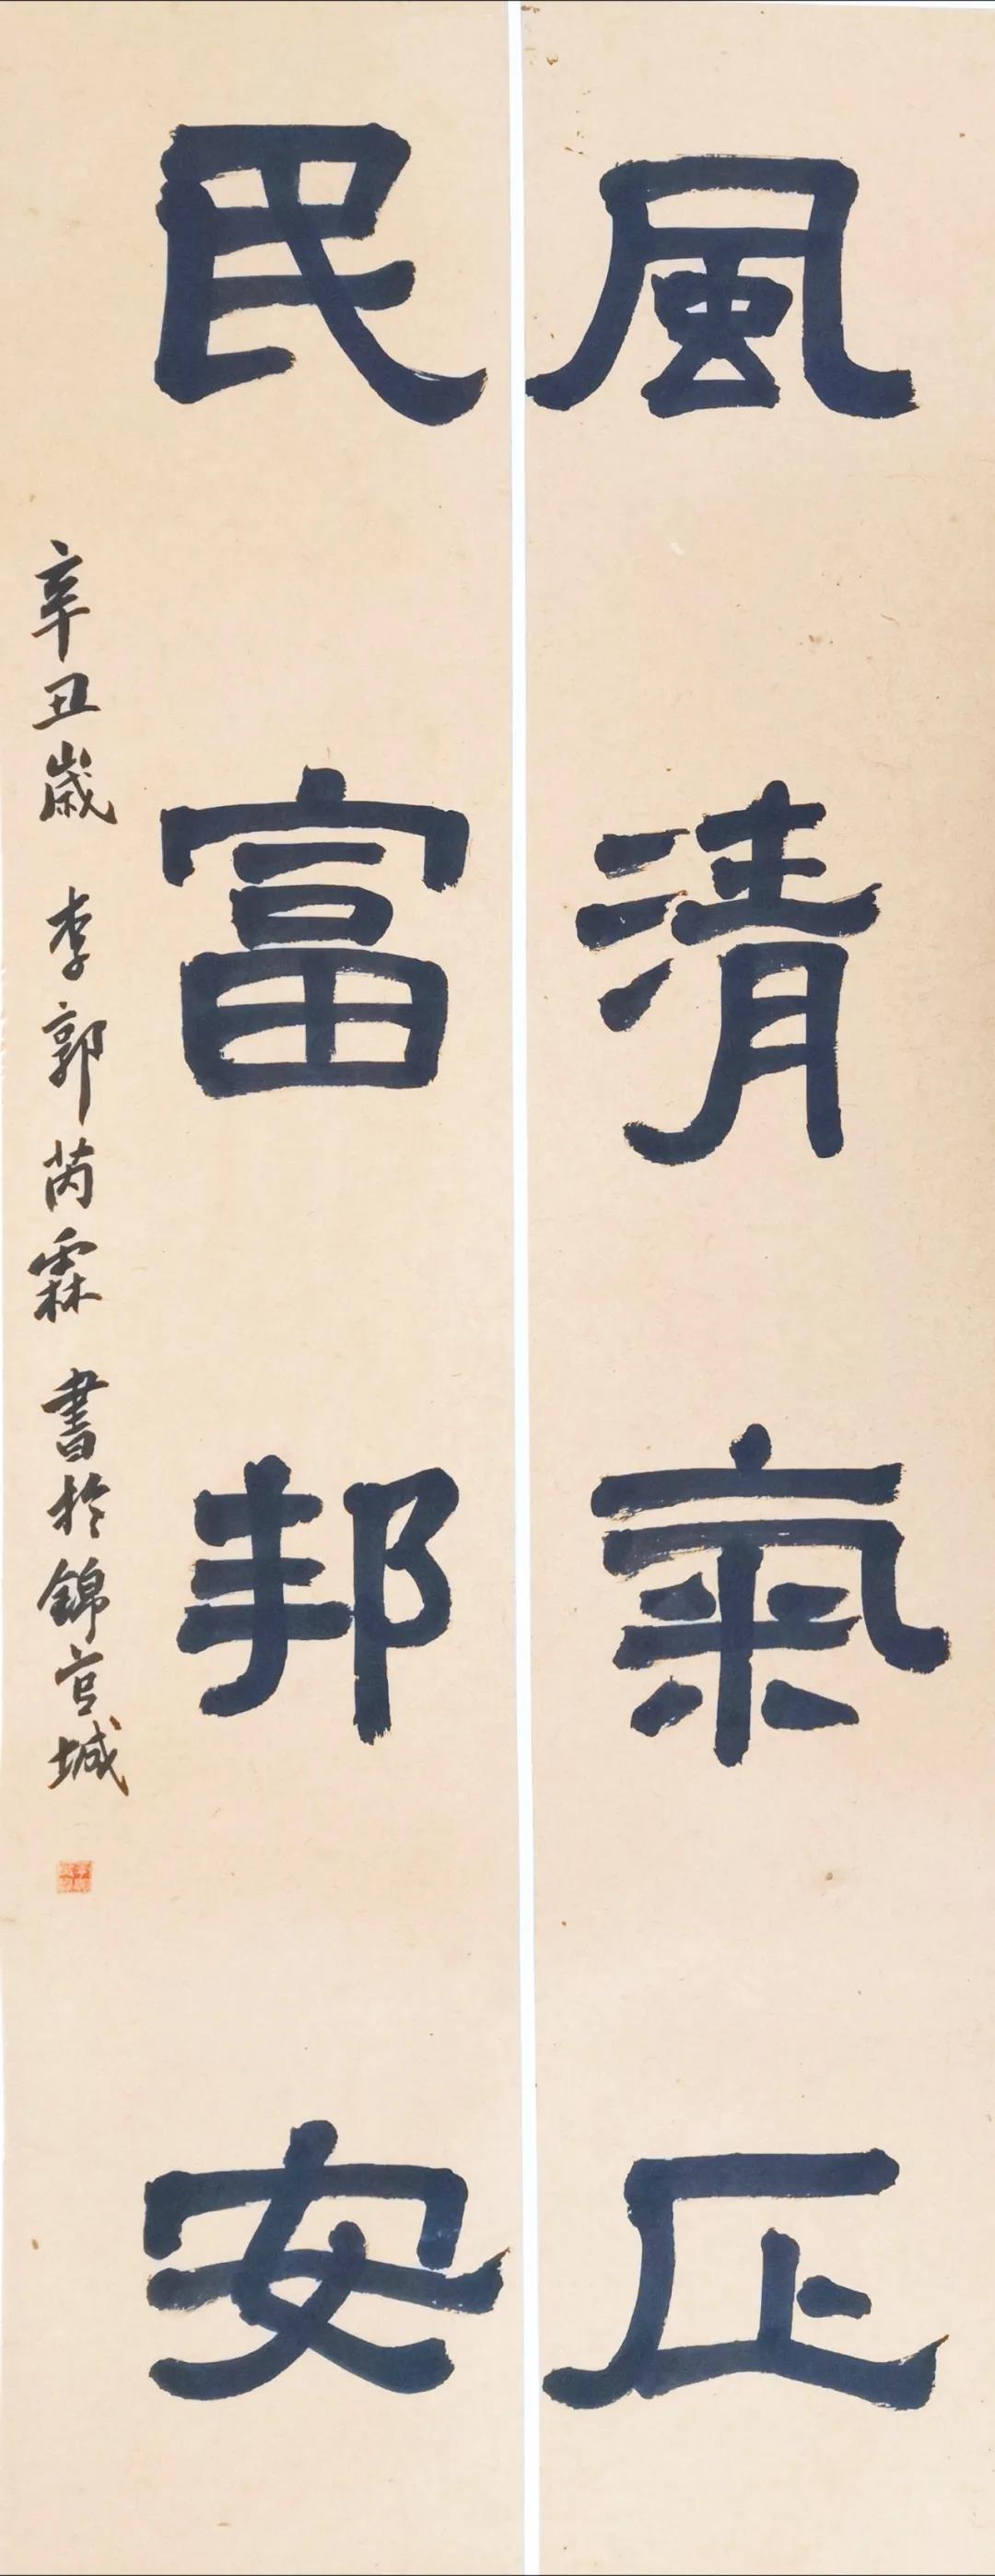 風清氣正
民富邦安
辛丑歲 李郭芮霖 書於錦官城